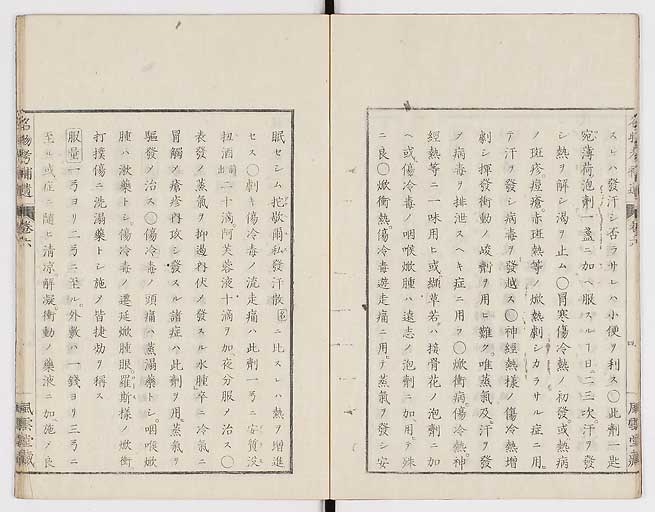 スレハ發汗シ否ラサレハ小便ヲ利ス〇此劑一匙
宛薄荷泡劑一盞ニ加ヘ服スル了日ニ二三次汗ヲ發
シ熱ヲ解シ渴ヲ止ム〇冒寒傷冷熱ノ初發或熱病
ノ斑疹痘瘡赤斑熱等ノ焮熱劇シカラサル症ニ用
テ汗ヲ發シ病毒ヲ發越ス〇神經熱樣ノ傷冷熱增
劇シ揮發衝動ノ峻劑ヲ用ヒ難ク唯蒸氣及汗ヲ發
ノ病毒ヲ排泄スヘキ症ニ用ヲ〇焮衝病傷冷熱神
經熱等ニ一味用ヒ或纈草若ハ接骨花ノ泡劑ニ加
ヘ或傷冷毒ノ咽喉焮腫ハ遠志ノ泡劑ニ加用ヲ殊
ニ良〇焮衝熱傷冷毒遊走痛ニ用ヲ蒸氣ヲ發シ安
眠セシム扢歇爾私發汗散名ニ比スレハ熱ヲ增進
セス〇劇キ傷冷毒ノ流走痛ハ此劑一ニ安質沒
扭酒前出二十滴阿芙蓉液十滴ヲ加夜分服ノ治ス〇
表發ノ蒸氣ヲ抑遏冉伏ノ發スル水腫卒ニ冷氣ニ
冒觸ノ瘡疹冉攻シ發スル諸症ハ此劑ヲ用蒸氣ヲ
驅發ノ治ス〇傷冷毒ノ頭痛ハ蒸溻藥トシ咽喉焮
腫ハ漱藥トシ傷冷毒ノ遷延焮腫眼羅斯樣ノ焮衝
打撲傷ニ洗溻藥トシ施ノ皆捷効ヲ稱ス
服量一ヨリ二ニ至ル外敷ハ一錢ヨリ三ニ
至ル或症ニ隨ヒ清凉解凝衝動ノ藥液ニ加施ノ良
名物考補遺 卷六
風雲堂藏